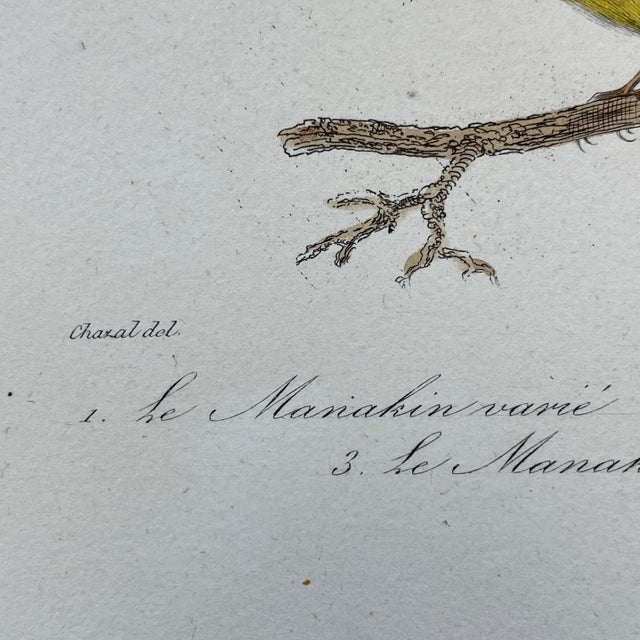 Chazal del.
1. Le Manakin varié
3. Le Manak